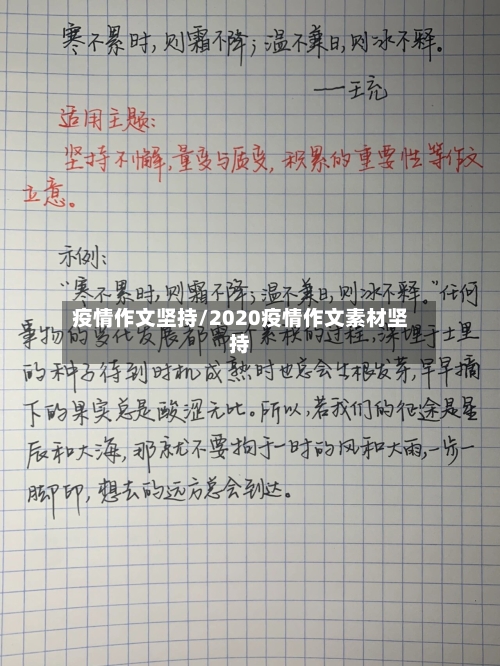 寒不累时,则霜不降;温不兼日,则冰不释。
——王充
适用主题:
坚持不懈,量变与质变,积累的重要性等作文
立意。
示例:
“寒不累时,则霜不降;温不兼日,则冰不释。”任何
疫情作文坚持/2020疫情作文素材坚
持
事物的变化发展都需 个累积的过程,深埋于土里
的种子待到时机成熟时也总会生根发芽,早早摘
下的果实总是酸涩无比。所以,若我们的征途是星
辰和大海,那就不要拘于一时的风和大雨,一步一
脚印,想去的远方总会到达。